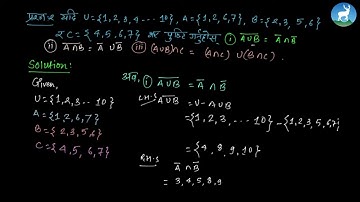 प्रश्न: यदि U={1,2,3,4---10}, A={1,2,6,7}, B={2,3,5,6}
र C={4,5,6,7} भए पुष्टि गर्नुहोस् ⓘ A̅U̅B̅ = A̅∩B̅
ⓘⓘ A̅∩B̅ = A̅UB̅ ⓘⓘⓘ (AUB)∩C = (A∩C) U(B∩C).
Solution:
Given,
U={1,2,3--10}
A={1,2,6,7}
B={2,3,5,6}
C={4,5,6,7}
अब, ⓘ A̅U̅B̅ = A̅∩B̅
L.H.S A̅U̅B̅
= U-AUB
={1,2,3,---10}-{1,2,3,5,6,7}
={4,8,9,10}
R.H.S
A̅∩B̅
= 3,4,5,8,9